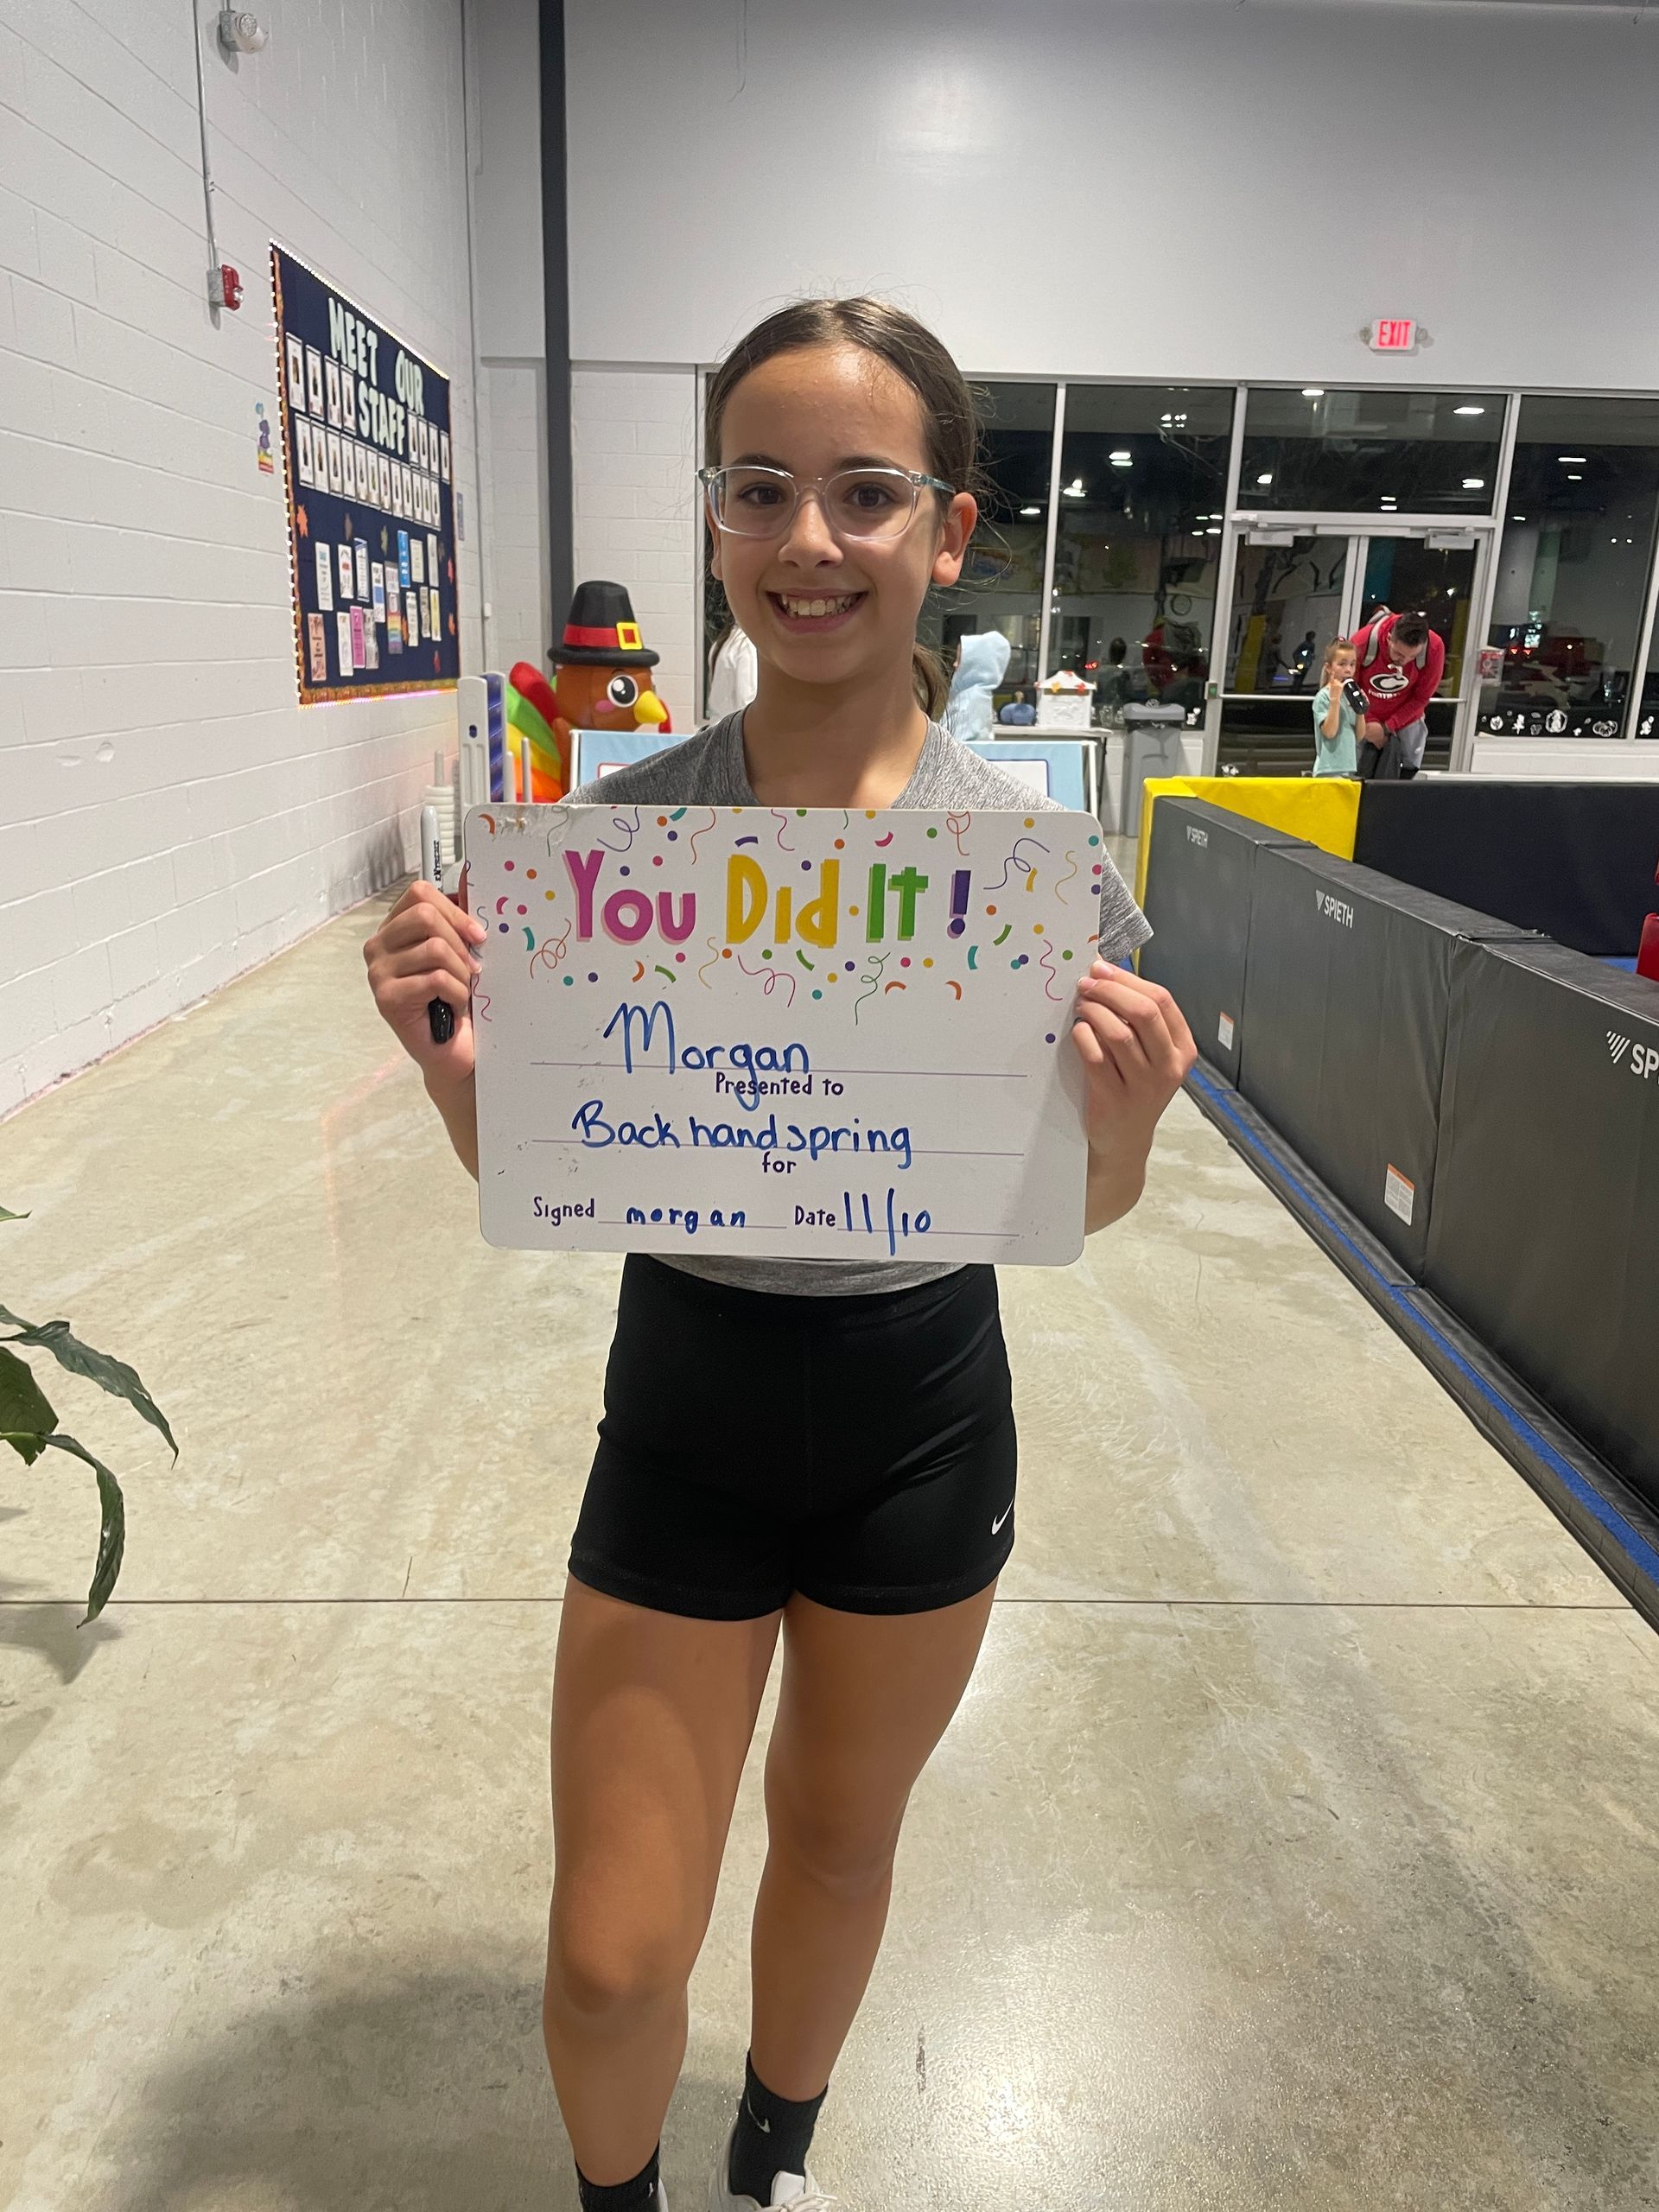 MEET OUR
STAFF
EXIT
You Did It!
Morgan
Presented to
Back handspring
for
Signed morgan Date 11/10
SPIETH
SPIETH
SP